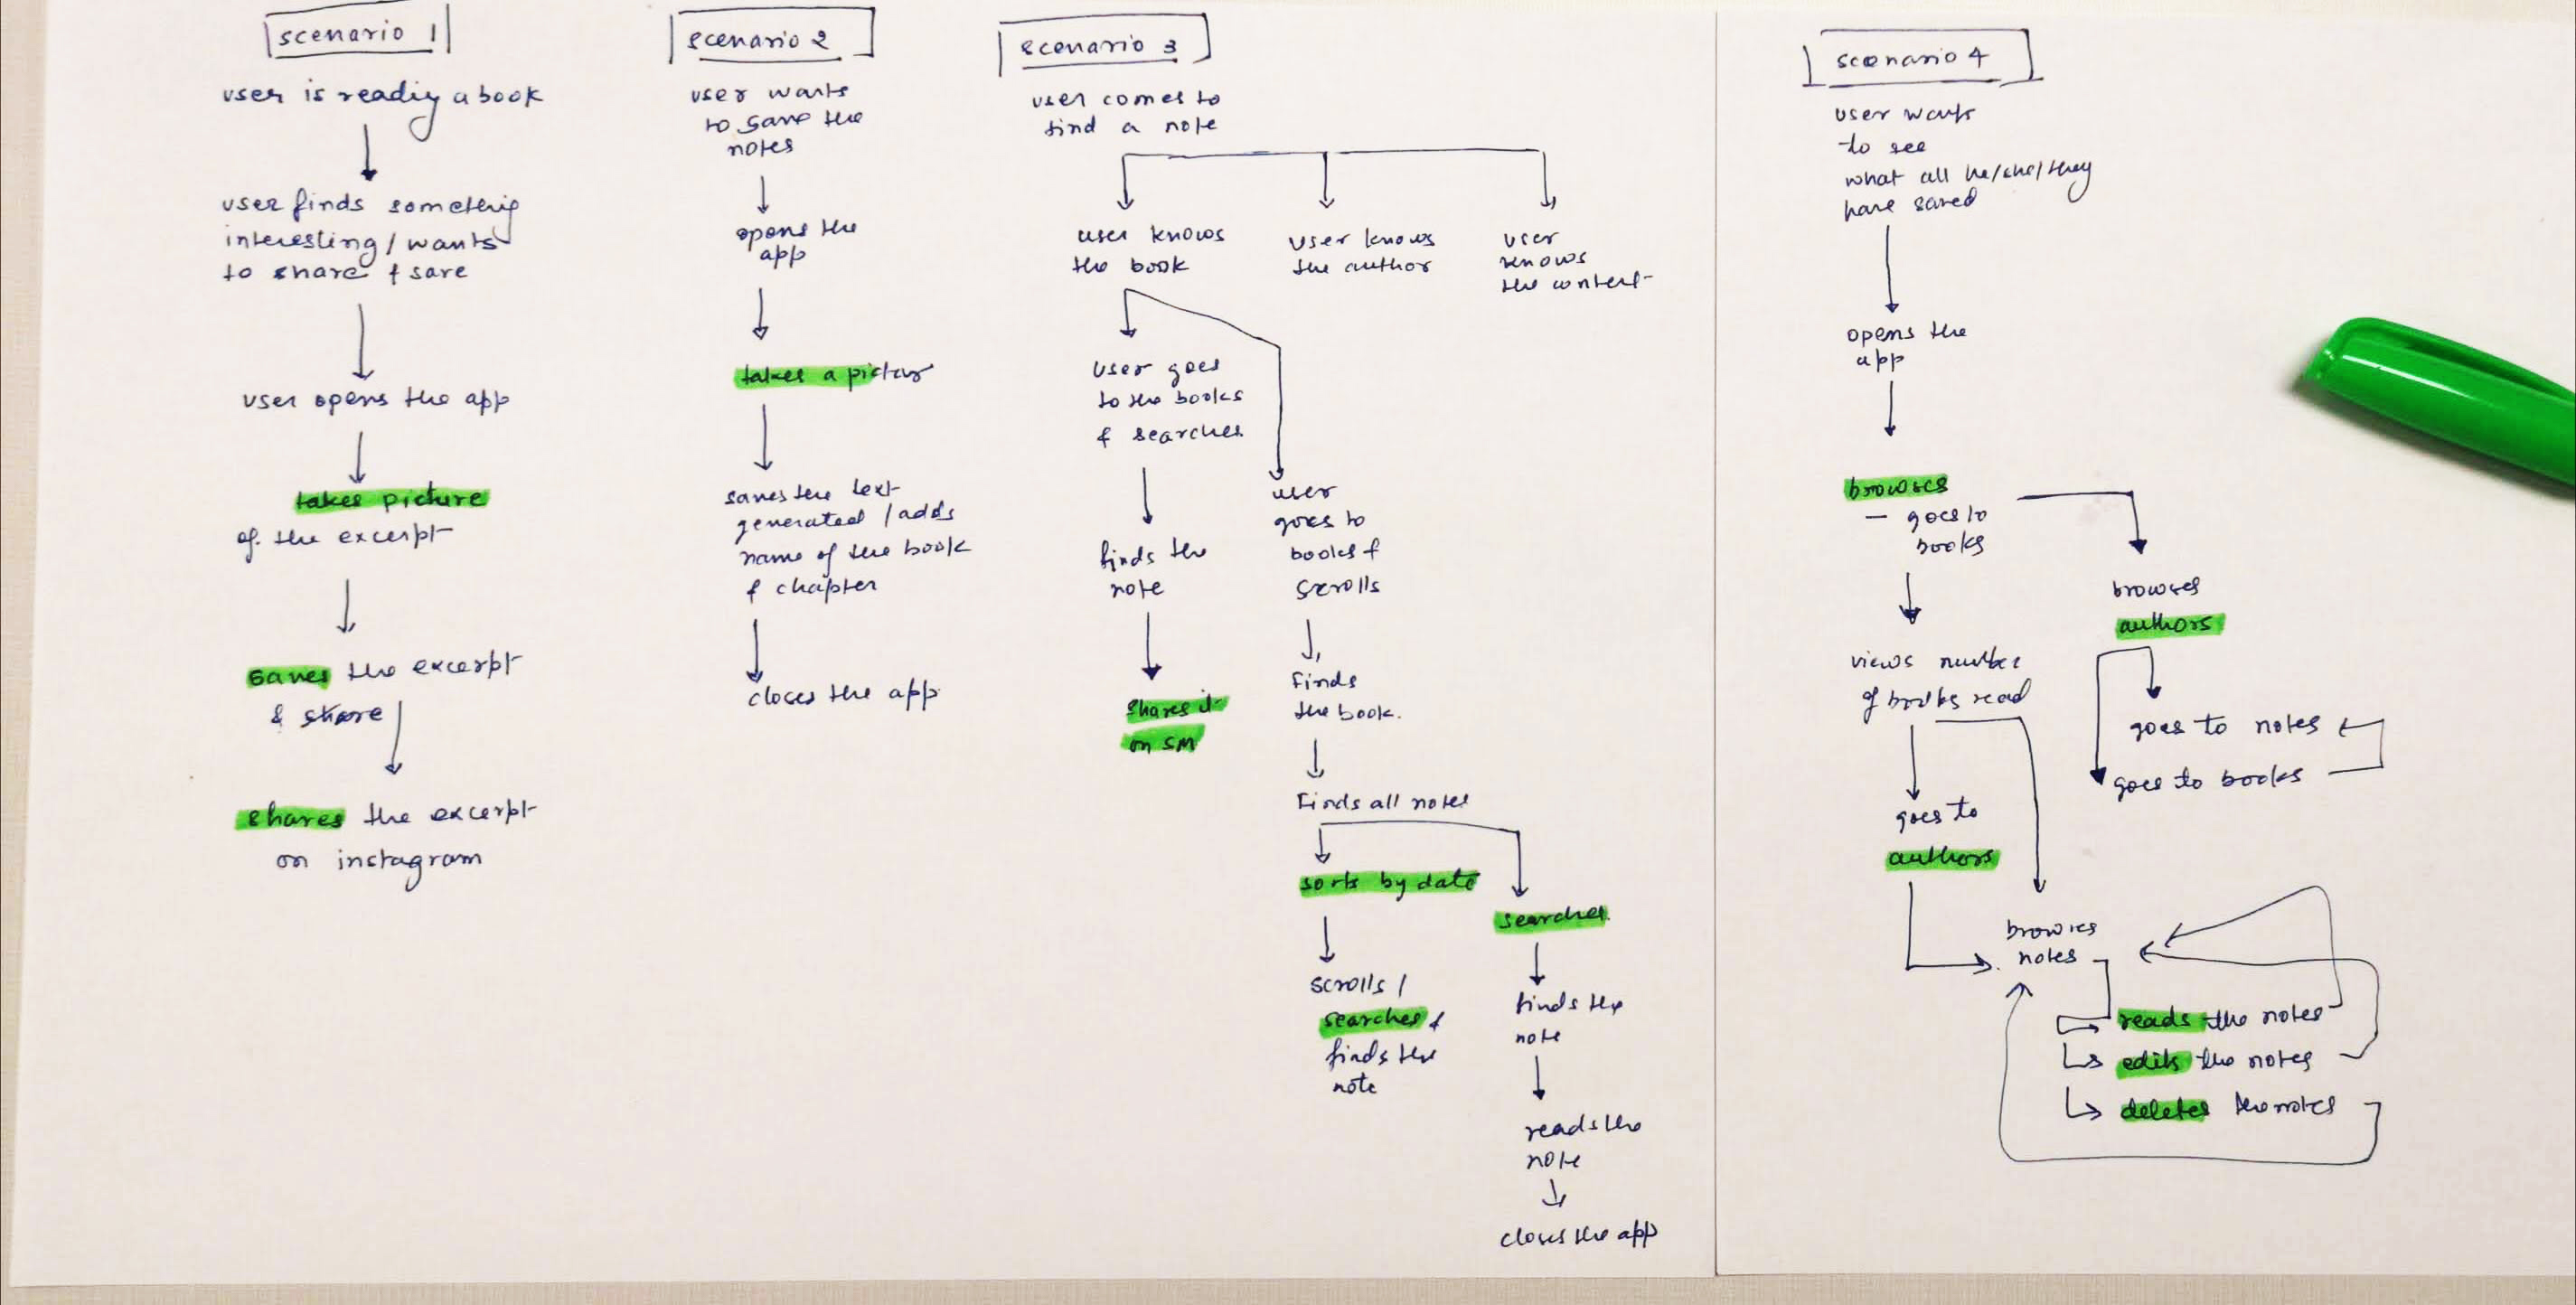 scenario 1
user is reading a book
user finds something
interesting / wants
to share & save
user opens the app
takes picture
of the excerpt
saves the excerpt
& share
shares the excerpt
on instagram
scenario 2
user wants
to save the
notes
opens the
app
takes a picture
saves the text
generated / adds
name of the book
& chapter
closes the app
scenario 3
user comes to
find a note
user knows
the book
user goes
to the books
& searches
finds the
note
shares it
on SM
user
goes to
books &
scrolls
finds
the book.
Finds all notes
sorts by date
scrolls /
searches &
finds the
note
searches
finds the
note
reads the
note
closes the app
user knows
the author
user
knows
the content
scenario 4
user wants
to see
what all he/she/they
have saved
opens the
app
browses
– goes to
books
views number
of books read
goes to
authors
browses
notes
reads the notes
edits the notes
deletes the notes
browses
authors
goes to notes
goes to books